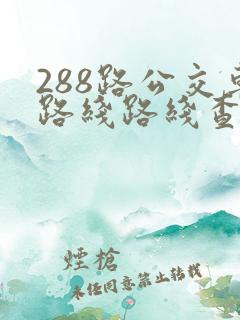 288路公交車
路綫路綫查
煙槍
未任同意禁止转载